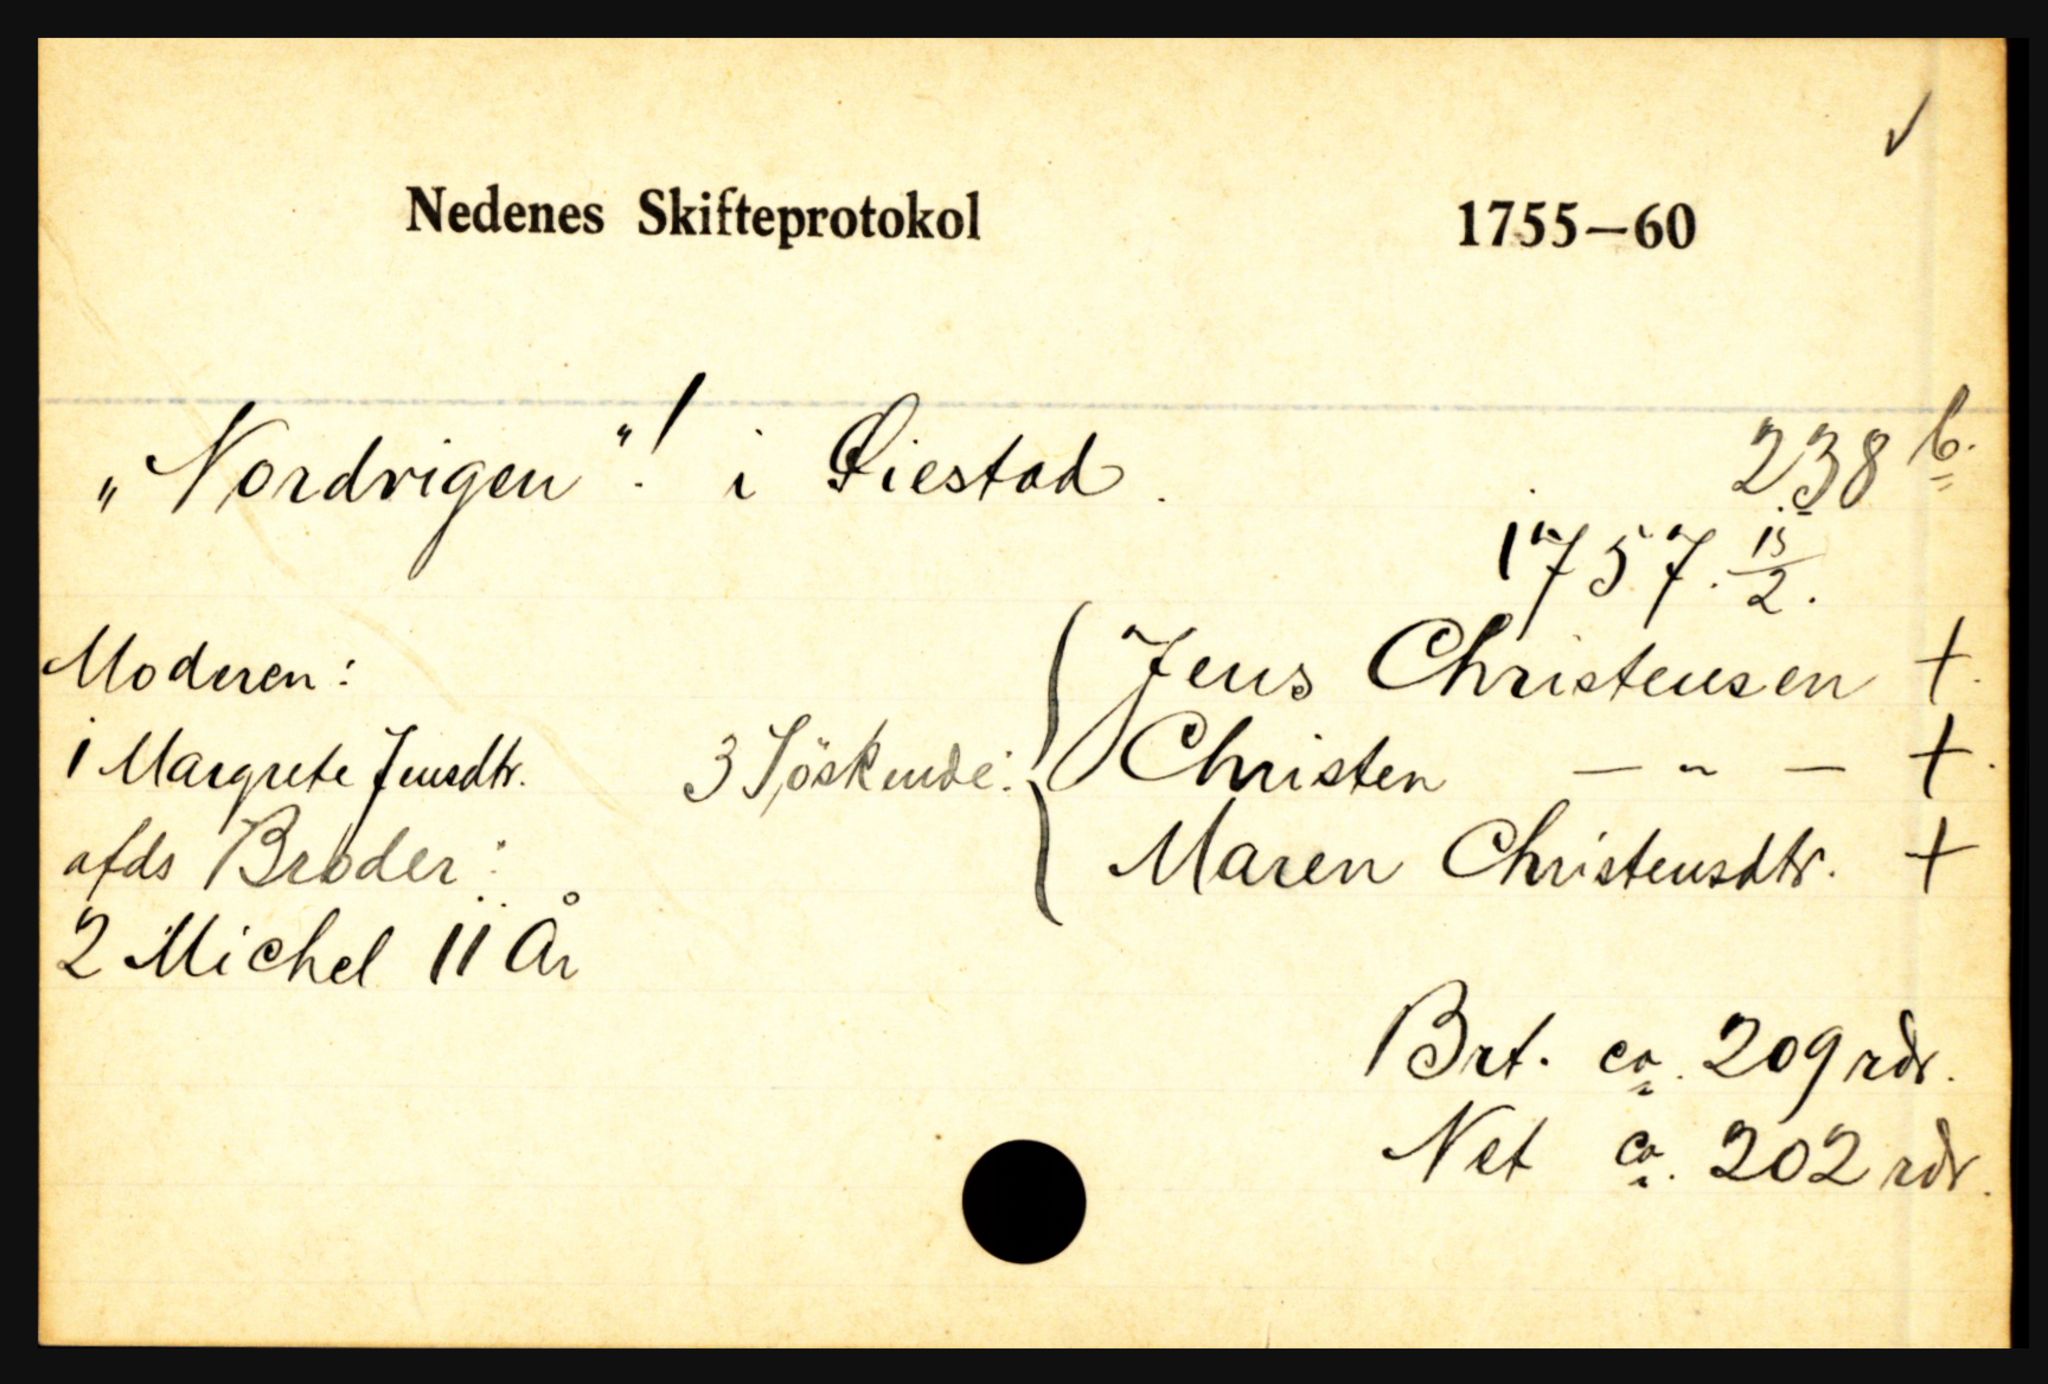 ✓
Nedenes Skifteprotokol 1755—60
„Nordrigen“! i Øiestad. 238 b.
1757. 15/2.
Moderen:
1 Margrete Jensdtr.
afds Broder:
2 Michel 11 År
3 Söskende:
Jens Christensen +
Christen — „ — +
Maren Christensdtr. +
Brt. ca. 209 rdr.
Net ca. 202 rdr.